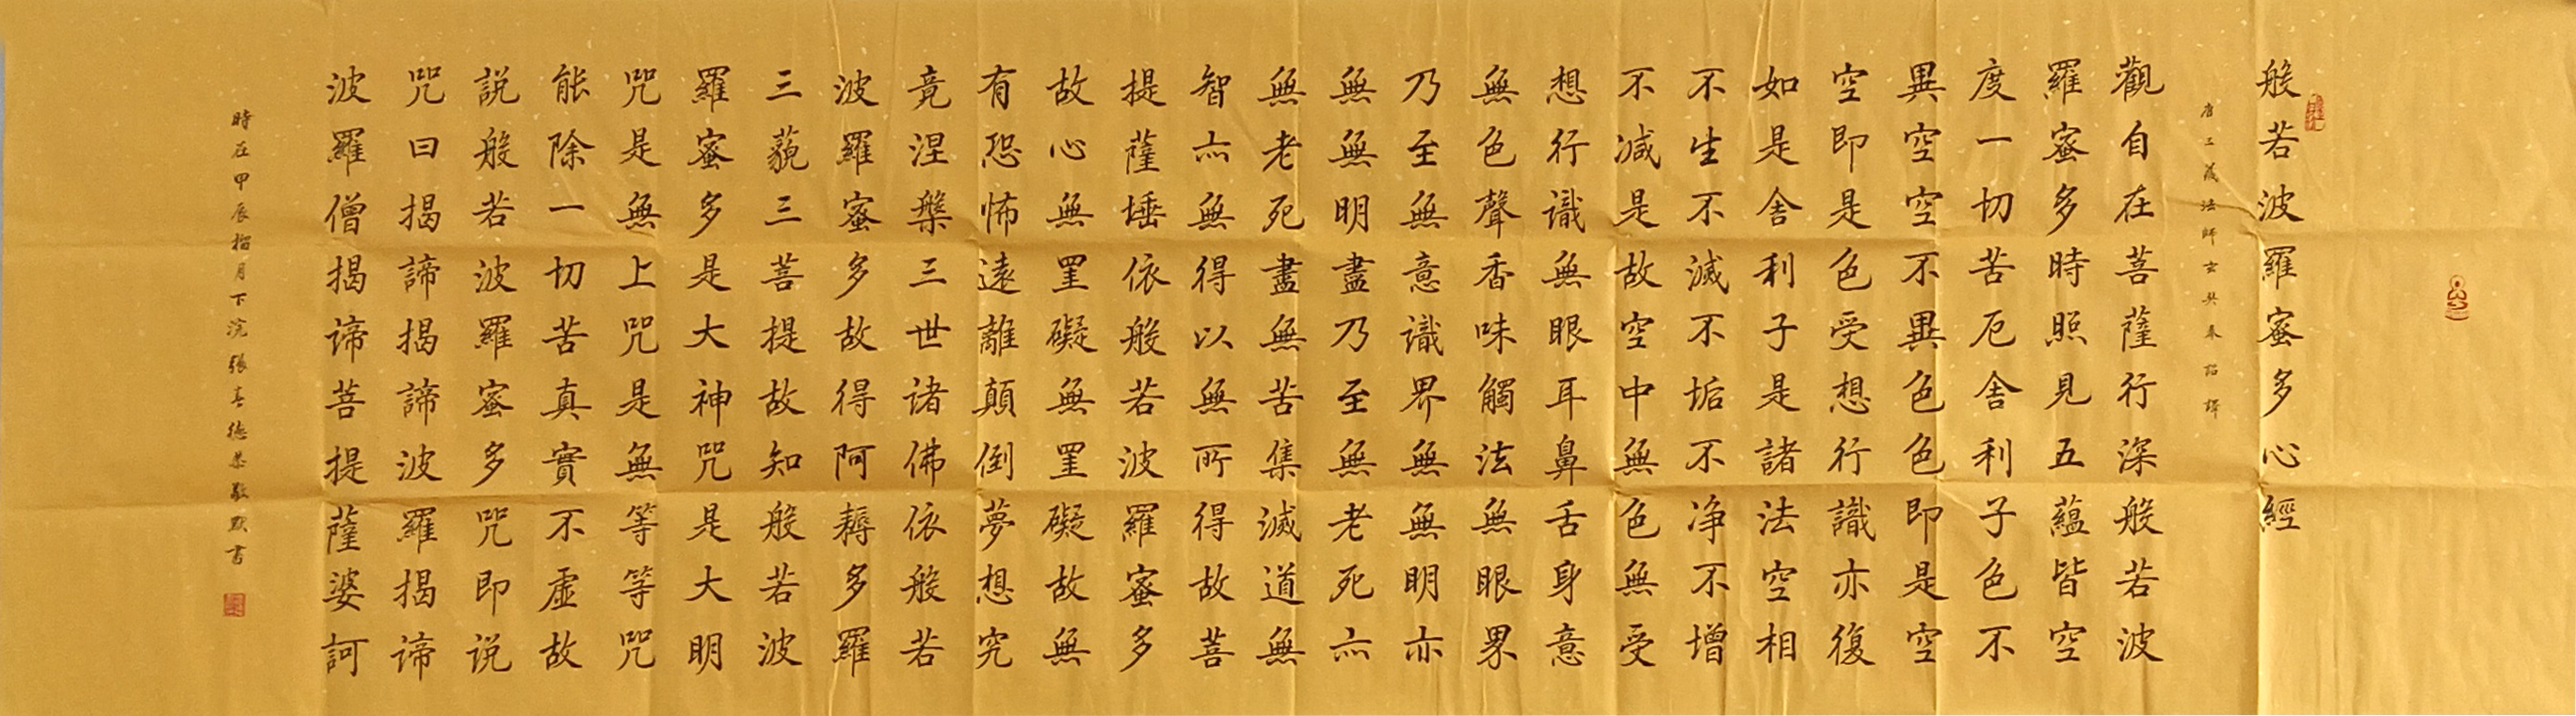 般若波羅蜜多心經
唐三藏法師玄奘奉詔譯
觀自在菩薩行深般若波
羅蜜多時照見五蘊皆空
度一切苦厄舍利子色不
異空空不異色色即是空
空即是色受想行識亦復
如是舍利子是諸法空相
不生不滅不垢不净不增
不減是故空中無色無受
想行識無眼耳鼻舌身意
無色聲香味觸法無眼界
乃至無意識界無無明亦
無無明盡乃至無老死亦
無老死盡無苦集滅道無
智亦無得以無所得故菩
提薩埵依般若波羅蜜多
故心無罣礙無罣礙故無
有恐怖遠離顛倒夢想究
竟涅槃三世諸佛依般若
波羅蜜多故得阿耨多羅
三藐三菩提故知般若波
羅蜜多是大神咒是大明
咒是無上咒是無等等咒
能除一切苦真實不虛故
説般若波羅蜜多咒即说
咒曰揭諦揭諦波羅揭谛
波羅僧揭谛菩提薩婆訶
時在甲辰榴月下浣張喜德恭敬默書